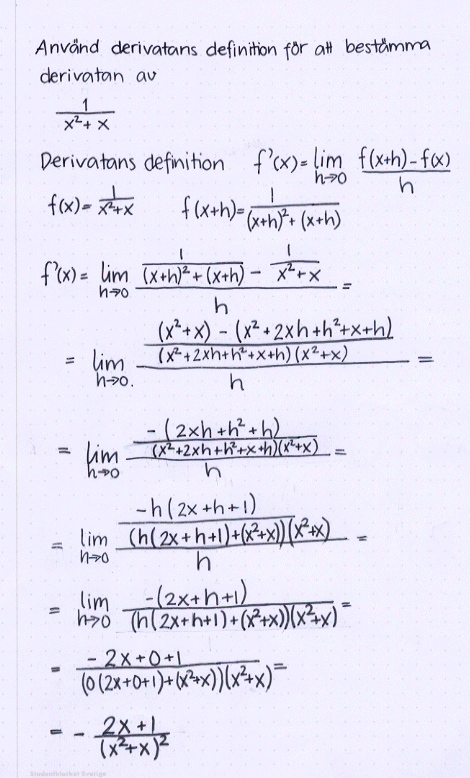 Använd derivatans definition för att bestämma
derivatan av
1/(x²+x)
Derivatans definition f'(x) = lim h→0 (f(x+h)-f(x))/h
f(x) = 1/(x²+x) f(x+h) = 1/((x+h)²+(x+h))
f'(x) = lim h→0 (1/((x+h)²+(x+h)) - 1/(x²+x))/h =
= lim h→0. (((x²+x) - (x²+2xh+h²+x+h))/((x²+2xh+h²+x+h)(x²+x)))/h =
= lim h→0 (-(2xh+h²+h)/((x²+2xh+h²+x+h)(x²+x)))/h =
= lim h→0 (-h(2x+h+1)/((h(2x+h+1)+(x²+x))(x²+x)))/h =
= lim h→0 -(2x+h+1)/((h(2x+h+1)+(x²+x))(x²+x)) =
= (-2x+0+1)/((0(2x+0+1)+(x²+x))(x²+x)) =
= - (2x+1)/(x²+x)²
Studentblocket Sverige